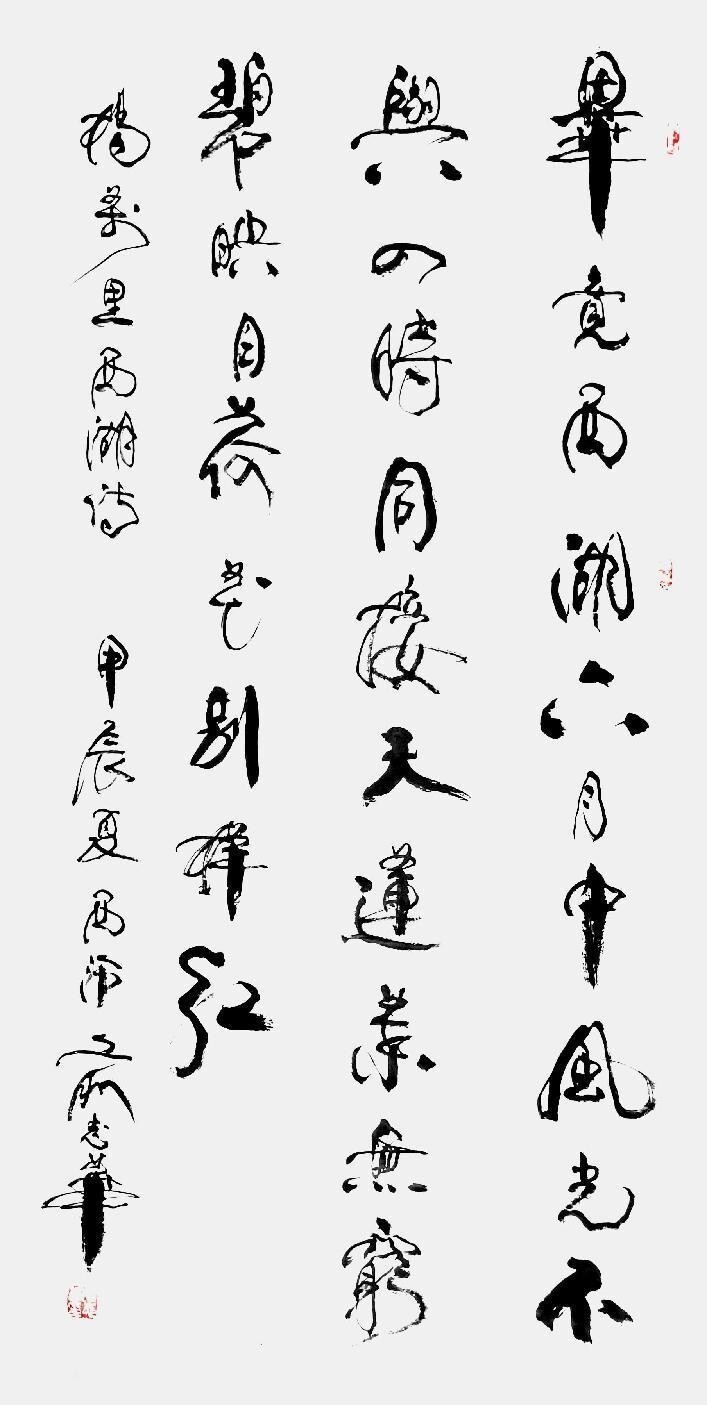 畢竟西湖六月中風光不
與四時同接天蓮葉無窮
碧映日荷花別樣紅
楊萬里西湖詩 甲辰夏西 志華